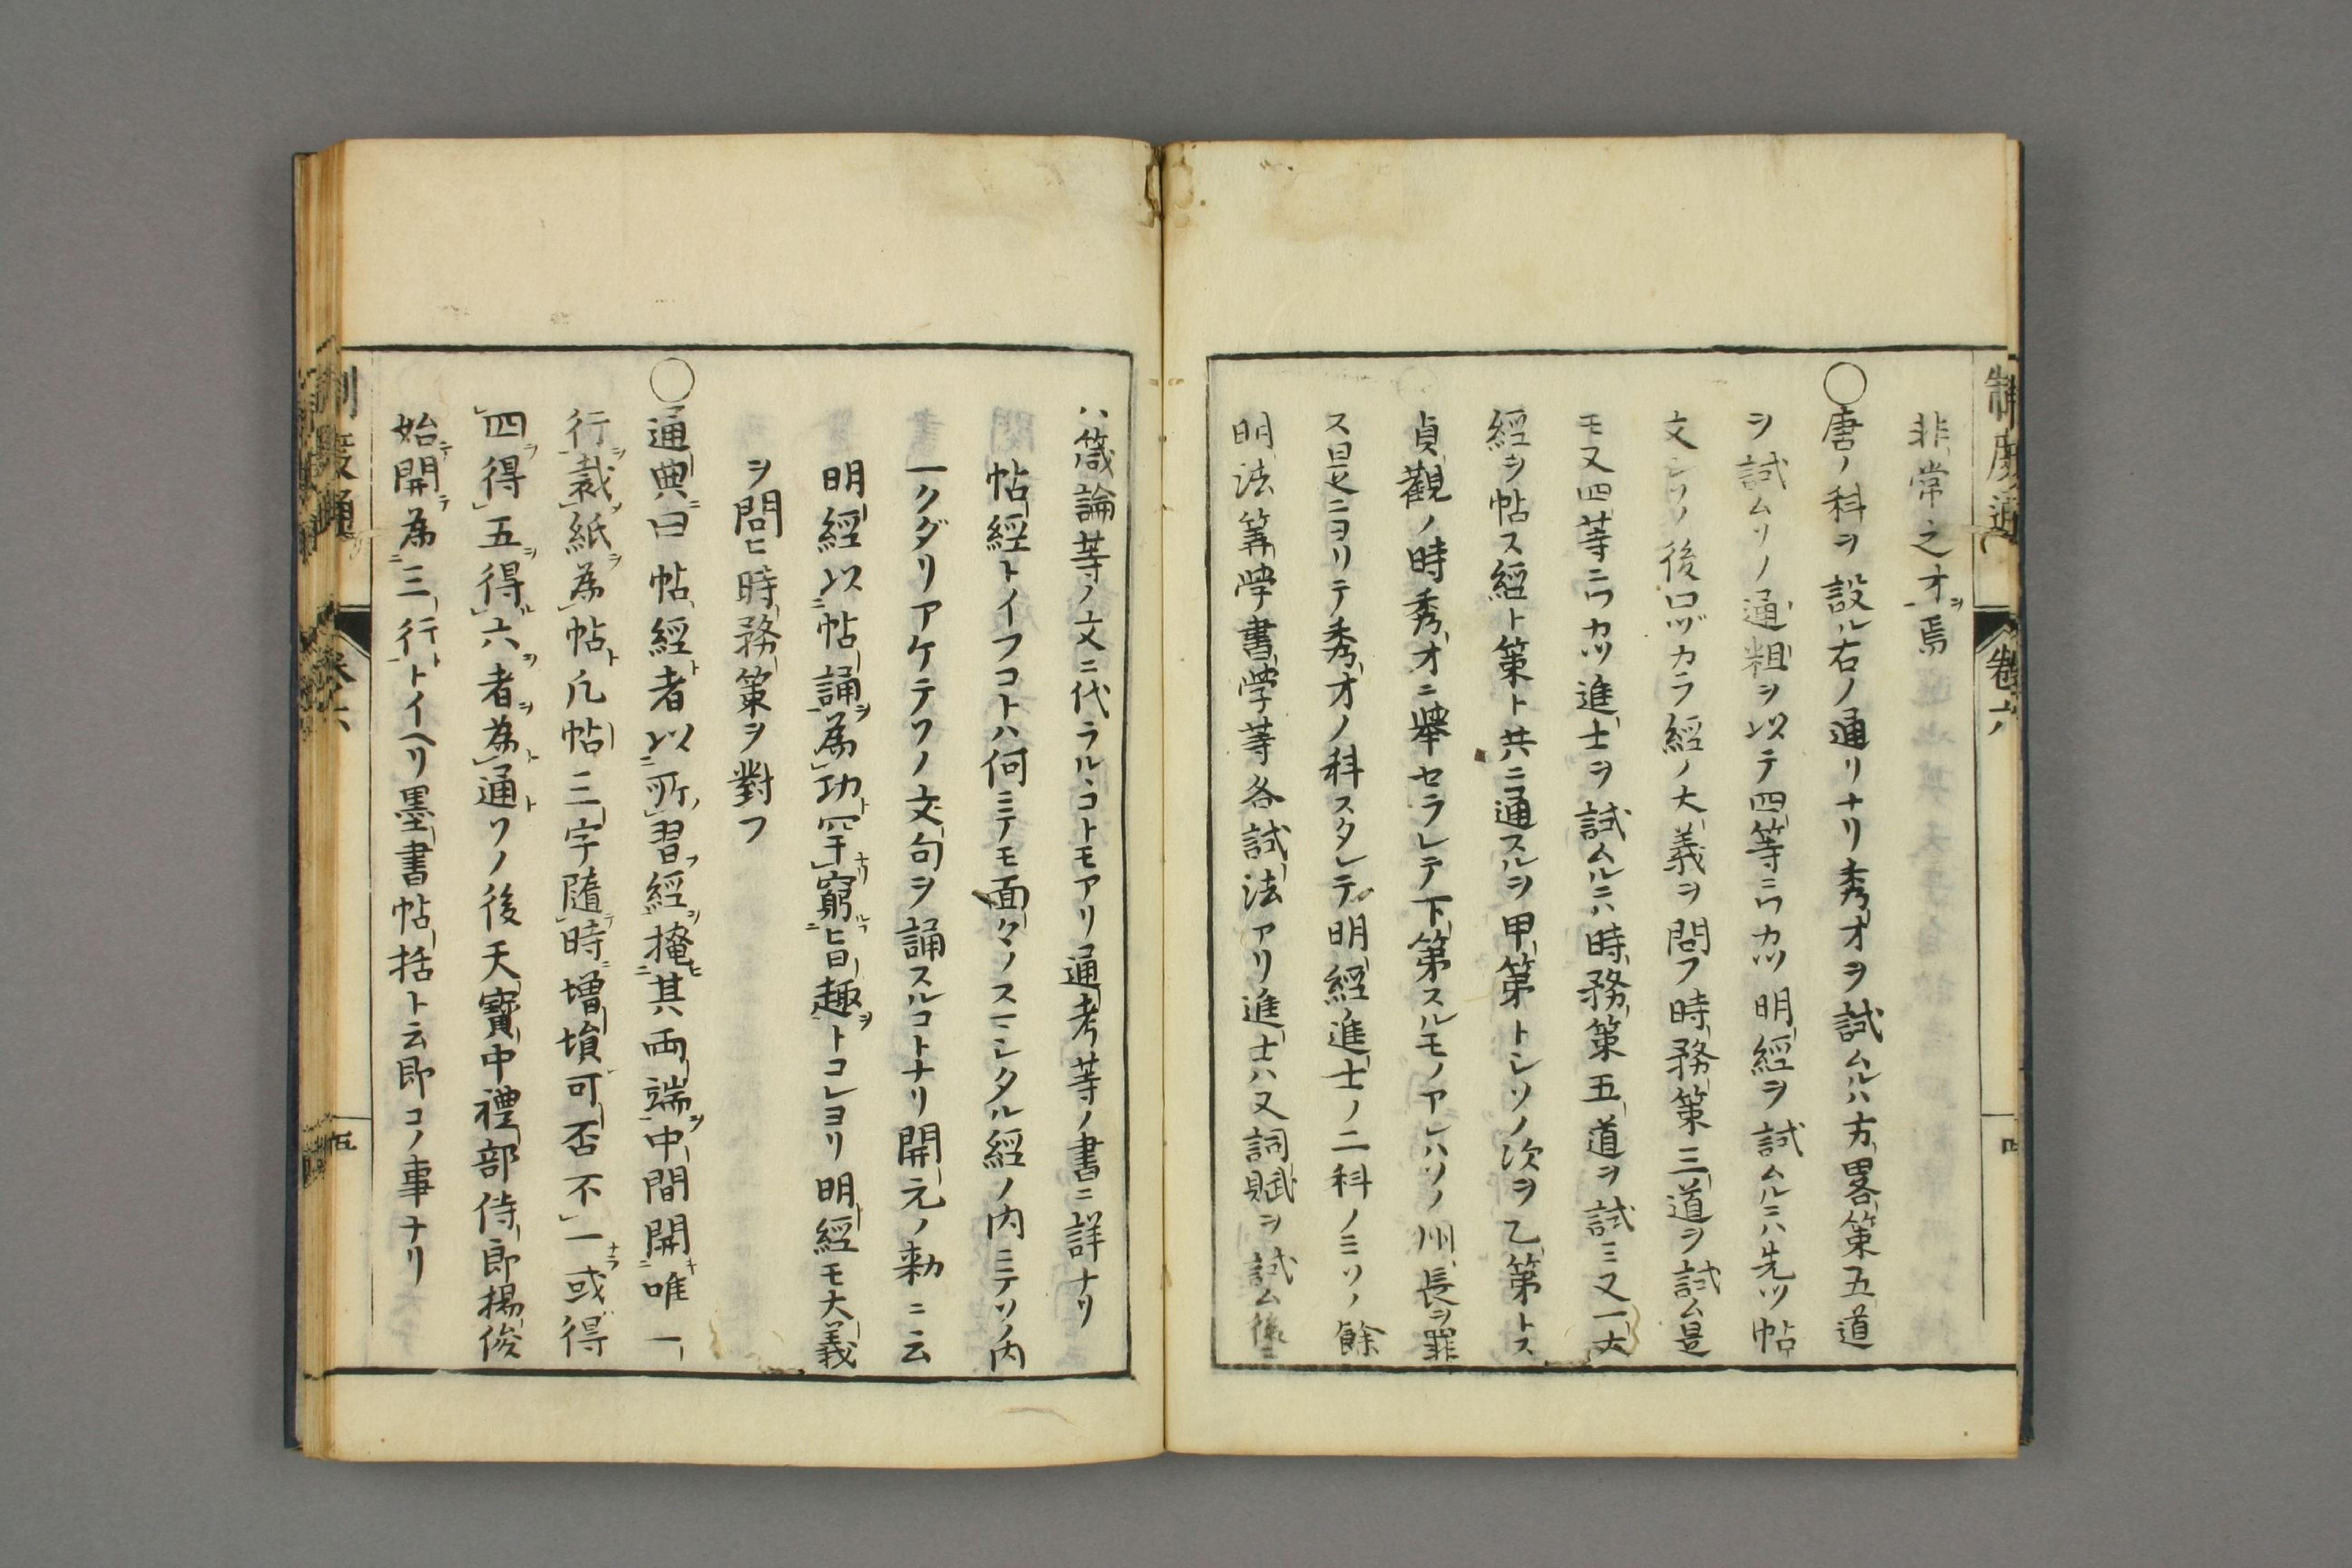 制度通 卷六
非常之才ヲ焉
〇唐ノ科ヲ設ル右ノ通リナリ秀才ヲ試ムルハ方畧策五道
ヲ試ムソノ通粗ヲ以テ四等ニワカツ明經ヲ試ムルニハ先ツ帖
文シソノ後口ヅカラ經ノ大義ヲ問フ時務策三道ヲ試ム是
モ又四等ニワカツ進士ヲ試ムルニハ時務策五道ヲ試ミ又一大
經ヲ帖ス經ト策ト共ニ通スルヲ甲第トシソノ次ヲ乙第トス
貞觀ノ時秀才ニ擧セラレテ下第スルモノアレハソノ州長ヲ罪
ス是ニヨリテ秀才ノ科スタレテ明經進士ノ二科ノミソノ餘
明法筭學書學等各試法アリ進士ハ又詞賦ヲ試ム後ニ
ハ箴論等ノ文ニ代ラルヽコトモアリ通考等ノ書ニ詳ナリ
帖經トイフコトハ何ニテモ面々ノスヽミシタル經ノ内ニテソノ内
一クダリアケテソノ文句ヲ誦スルコトナリ開元ノ勅ニ云
明經以帖誦ヲ爲功ト罕ナリ窮ルフ旨趣ヲトコレヨリ明經モ大義
ヲ問ヒ時務策ヲ對フ
〇通典ニ曰帖經ト者以所ノ習フ經ヲ掩ヒ其兩端ヲ中間開キ唯一
行ヲ裁ノ紙ヲ爲帖ト凡帖三字隨テ時ニ增損可否不一ナラ或得
四ヲ得五ヲ得ル六ヲ者ヲ爲ト通トソノ後天寶中禮部侍郎楊俊
始テ開テ爲三行トトイヘリ墨書帖括ト云即コノ事ナリ
制度通 卷六 五